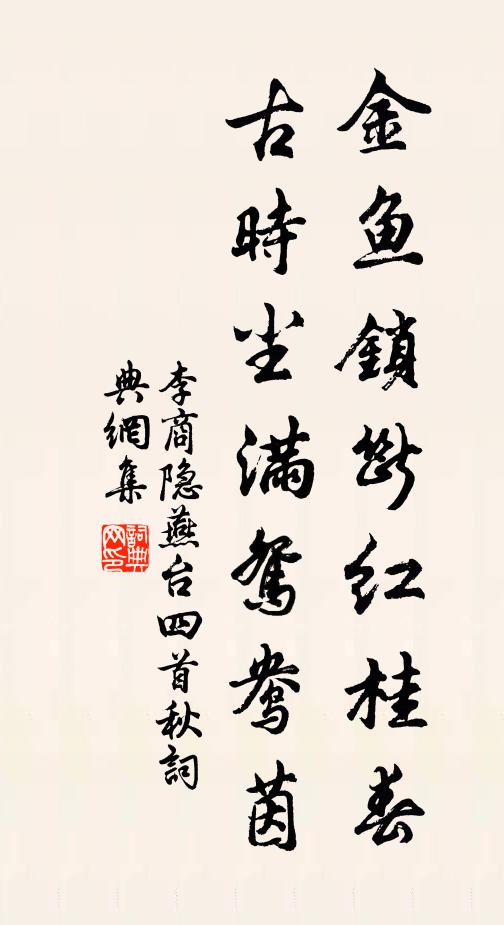 金鱼鎖斷红桂春
古時尘满鴛鴦茵
李商隐燕台四首秋詞
典網集
詞典网印